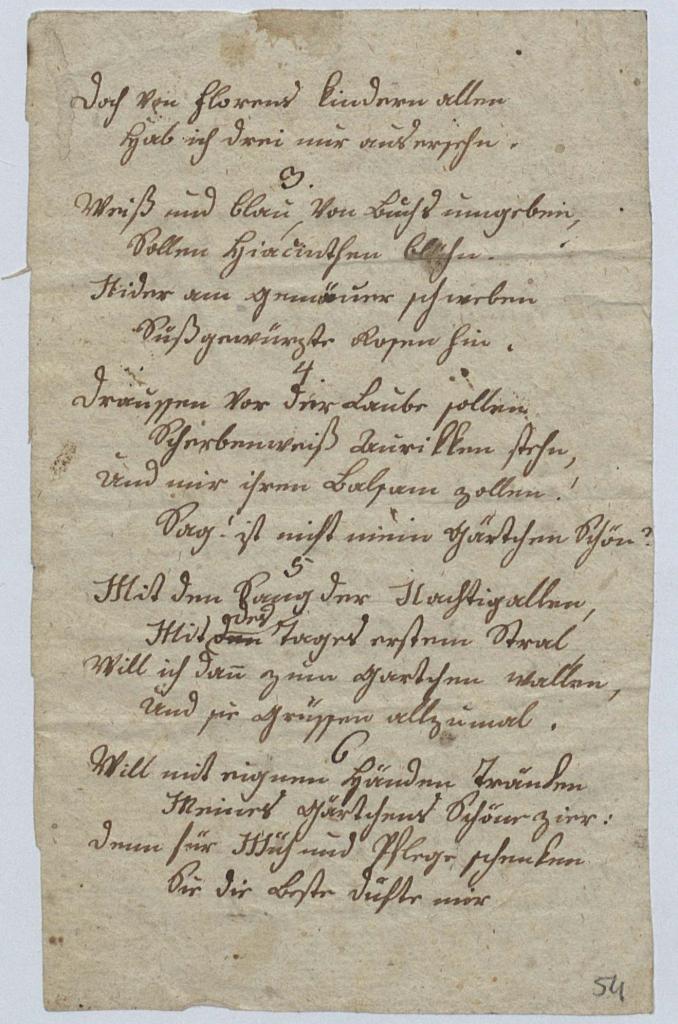 Doch von Florens Kindern allen
Hab ich drei nur ausersehn.
3.
Weiß und blau, von Buchs umgeben,
Sollen Hiacinthen blühn.
Nider am Gemäuer schweben
Süßgewürzte Rosen hin.
4
Draussen vor der Laube sollen
Scherbenweiß Aurikken stehn,
Und mir ihren Balsam zollen!
Sag! ist nicht mein Gärtchen Schön?
5
Mit den Sang der Nachtigallen,
des
Mit den Tages erstem Stral
Will ich dann zum Gartchen wallen,
Und sie Grüssen allzumal.
6
Will mit eignen Händen Tränken
Meines Gärtchens Schöne zier:
Denn für Müh und Pflege schenken
Sie die Beste Düfte mir
54